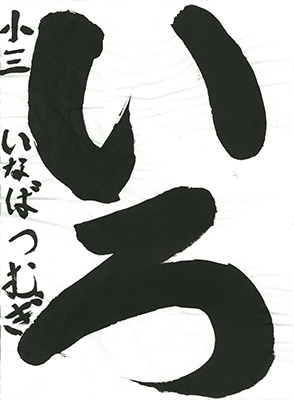 いろ
小三 いなばつむぎ